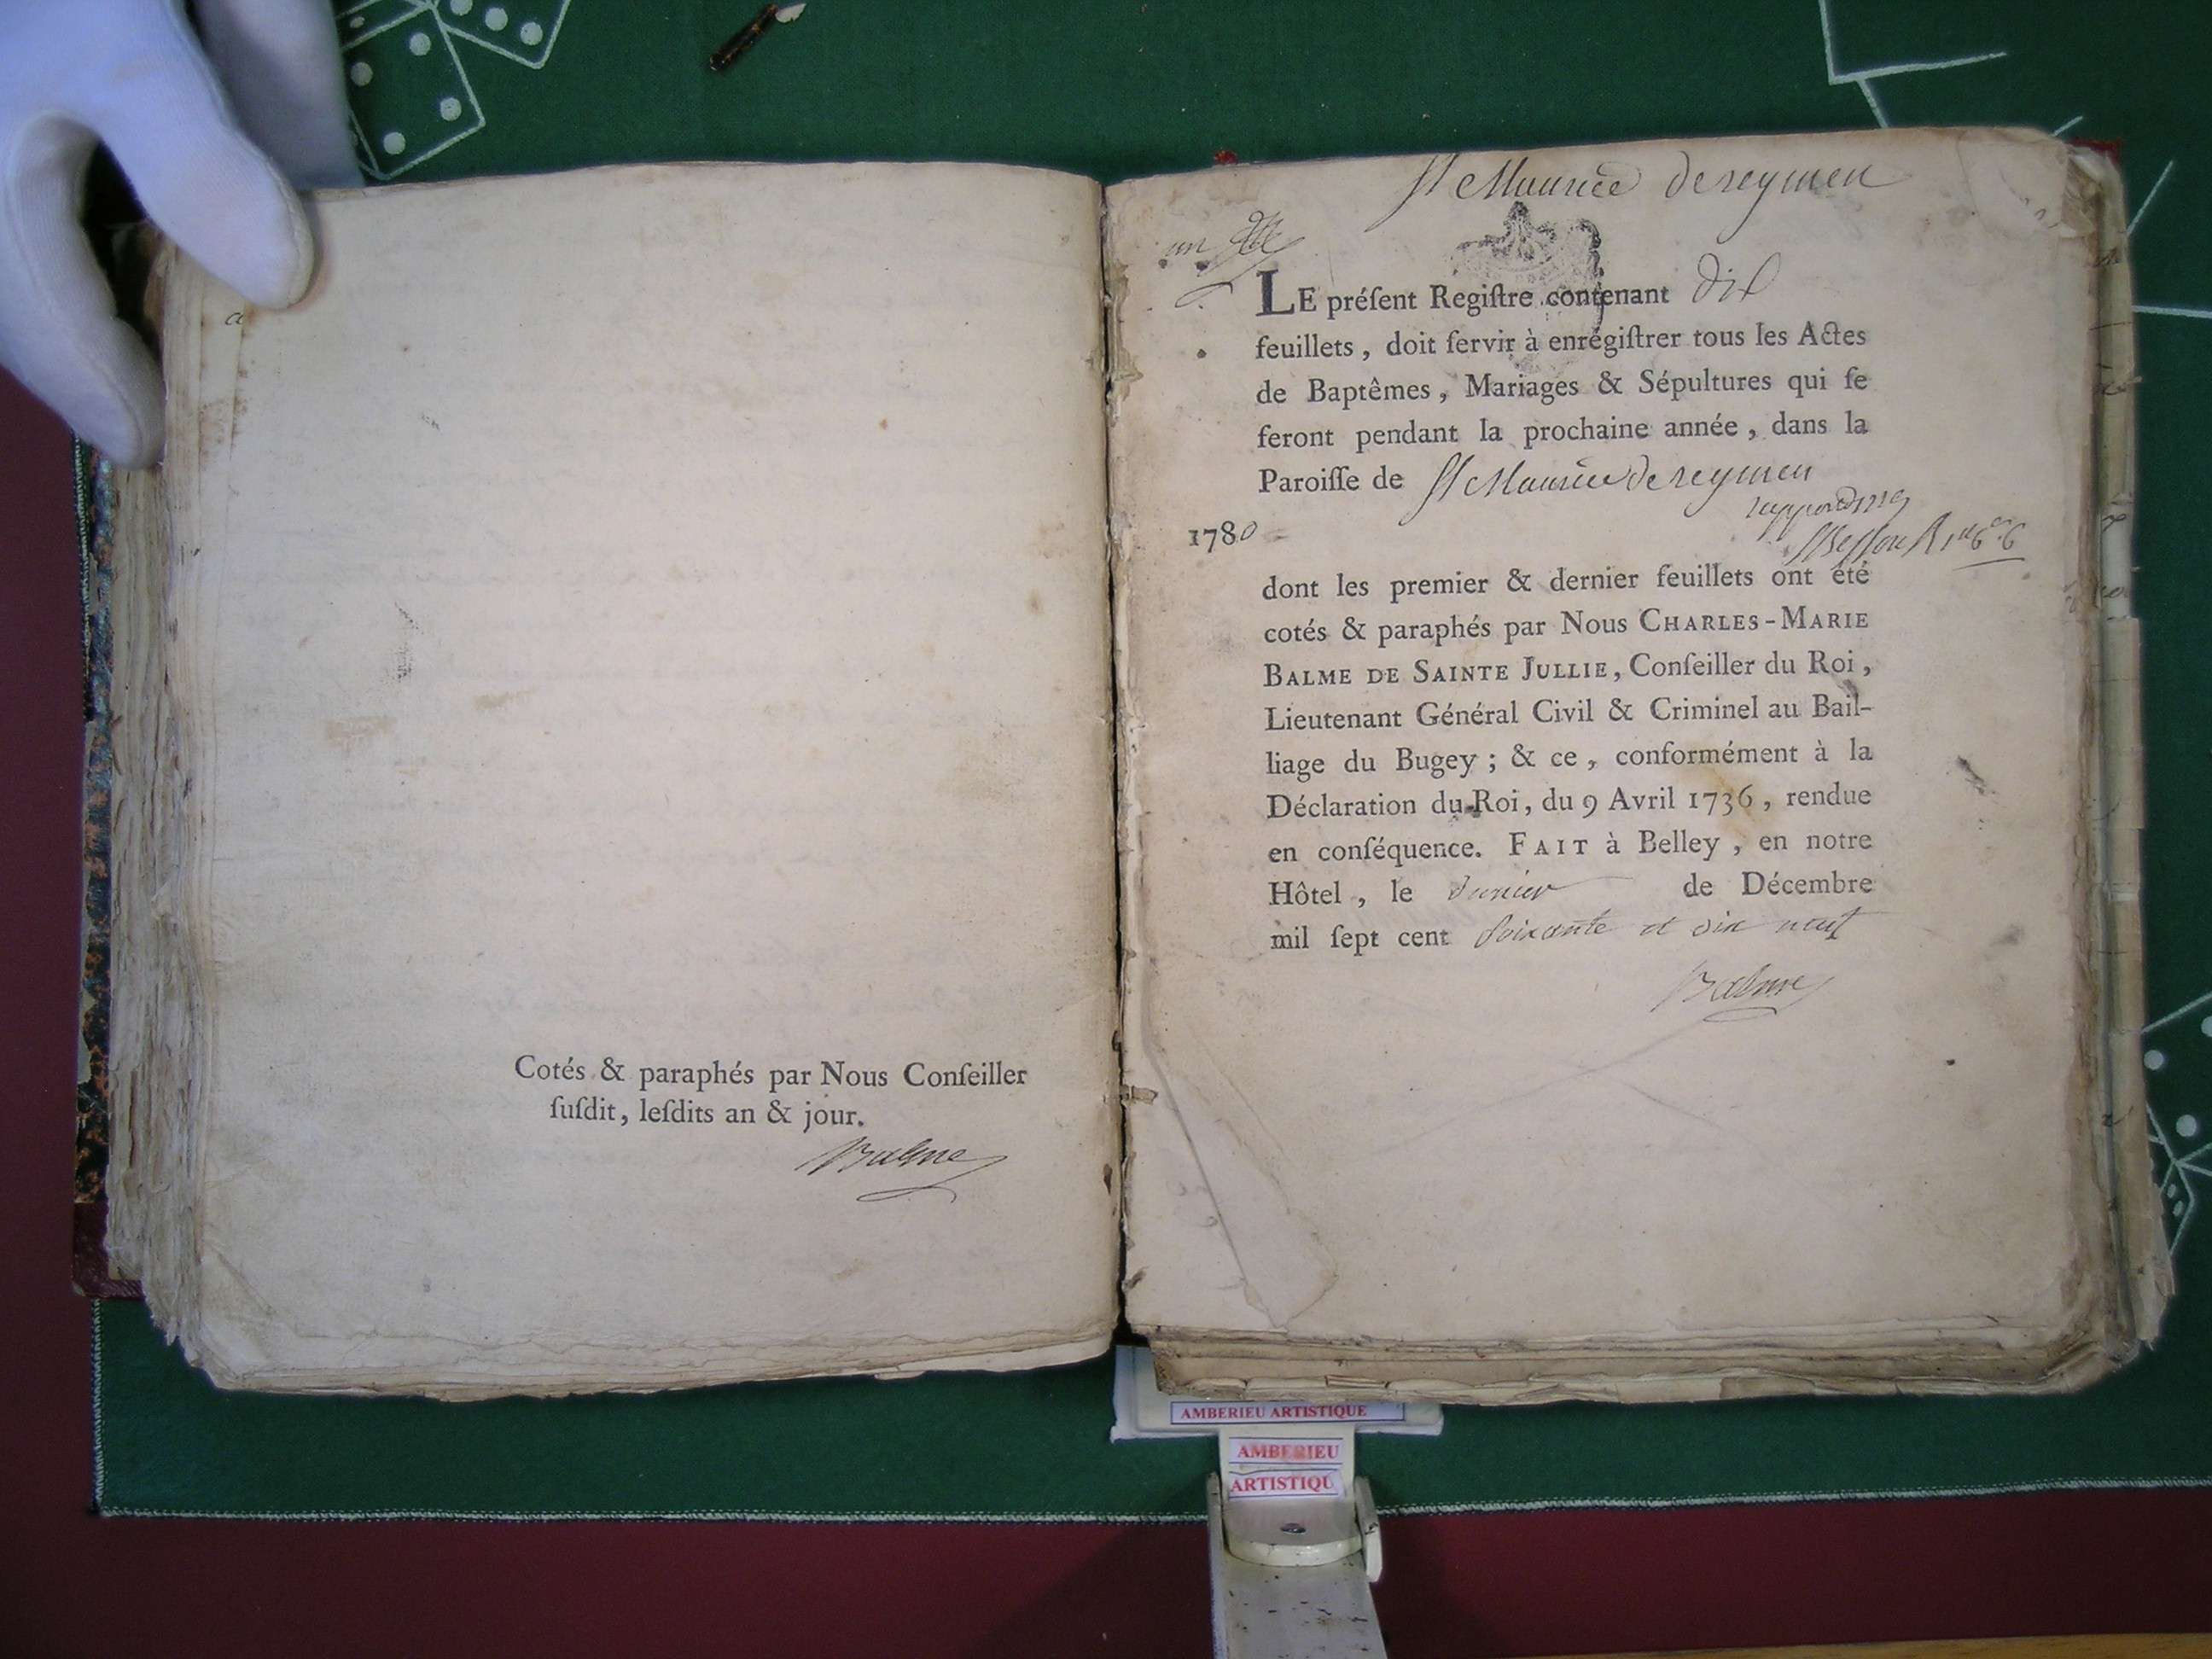 Cotés & paraphés par Nous Conſeiller
ſuſdit, leſdits an & jour.
Balme
St Maurice de reymen
un
LE préſent Regiſtre contenant dix
feuillets, doit ſervir à enrégiſtrer tous les Actes
de Baptêmes, Mariages & Sépultures qui ſe
feront pendant la prochaine année, dans la
Paroiſſe de St Maurice de reymen
1780
dont les premier & dernier feuillets ont été
cotés & paraphés par Nous CHARLES-MARIE
BALME DE SAINTE JULLIE, Conſeiller du Roi,
Lieutenant Général Civil & Criminel au Bail-
liage du Bugey ; & ce, conformément à la
Déclaration du Roi, du 9 Avril 1736, rendue
en conſéquence. FAIT à Belley, en notre
Hôtel, le dernier de Décembre
mil ſept cent soixante et dix neuf
Balme
AMBERIEU ARTISTIQUE
AMBERIEU
ARTISTIQU